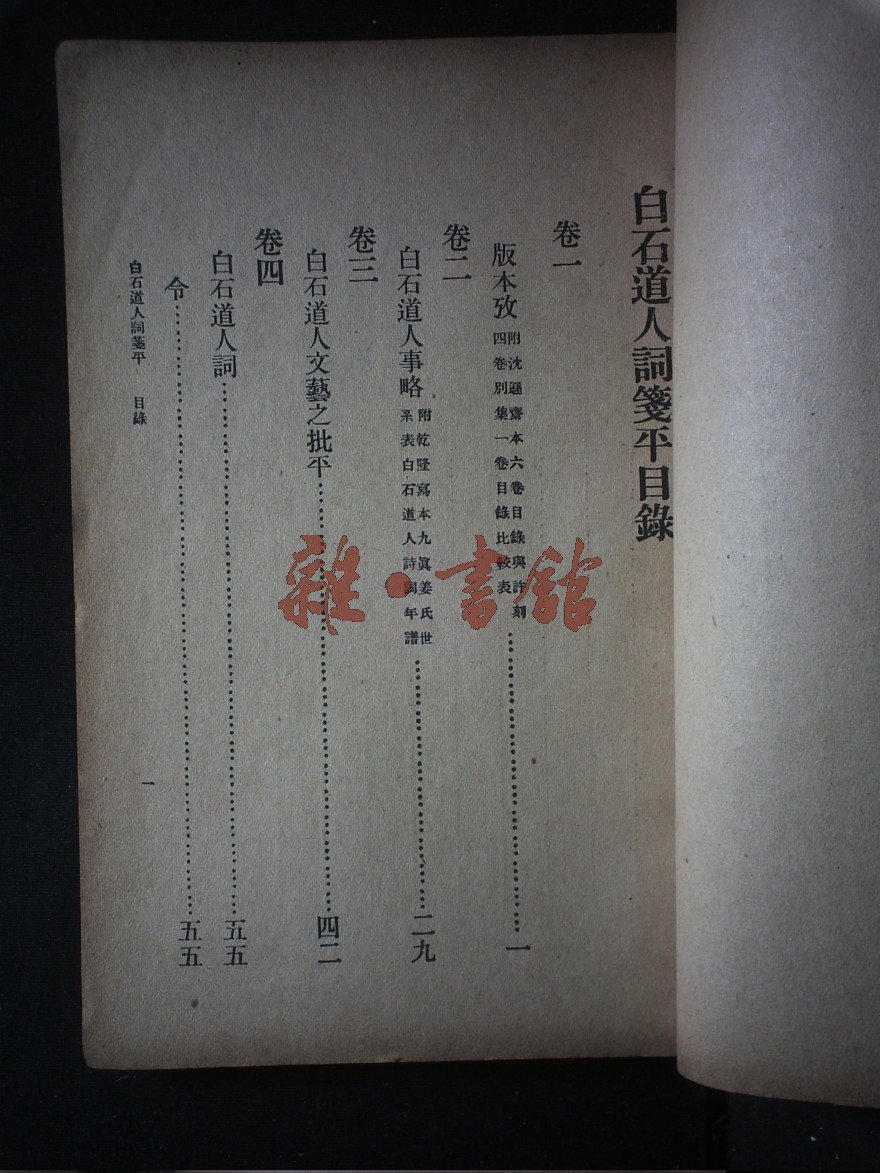 白石道人詞箋平目錄
卷一
版本攷
附沈遜齋本六卷目錄與許刻
四卷別集一卷目錄比較表
一
卷二
白石道人事略
附乾隆寫本九眞姜氏世
系表白石道人詩詞年譜
二九
卷三
白石道人文藝之批平
四二
卷四
白石道人詞
五五
令
五五
白石道人詞箋平 目錄
一
雜·書館